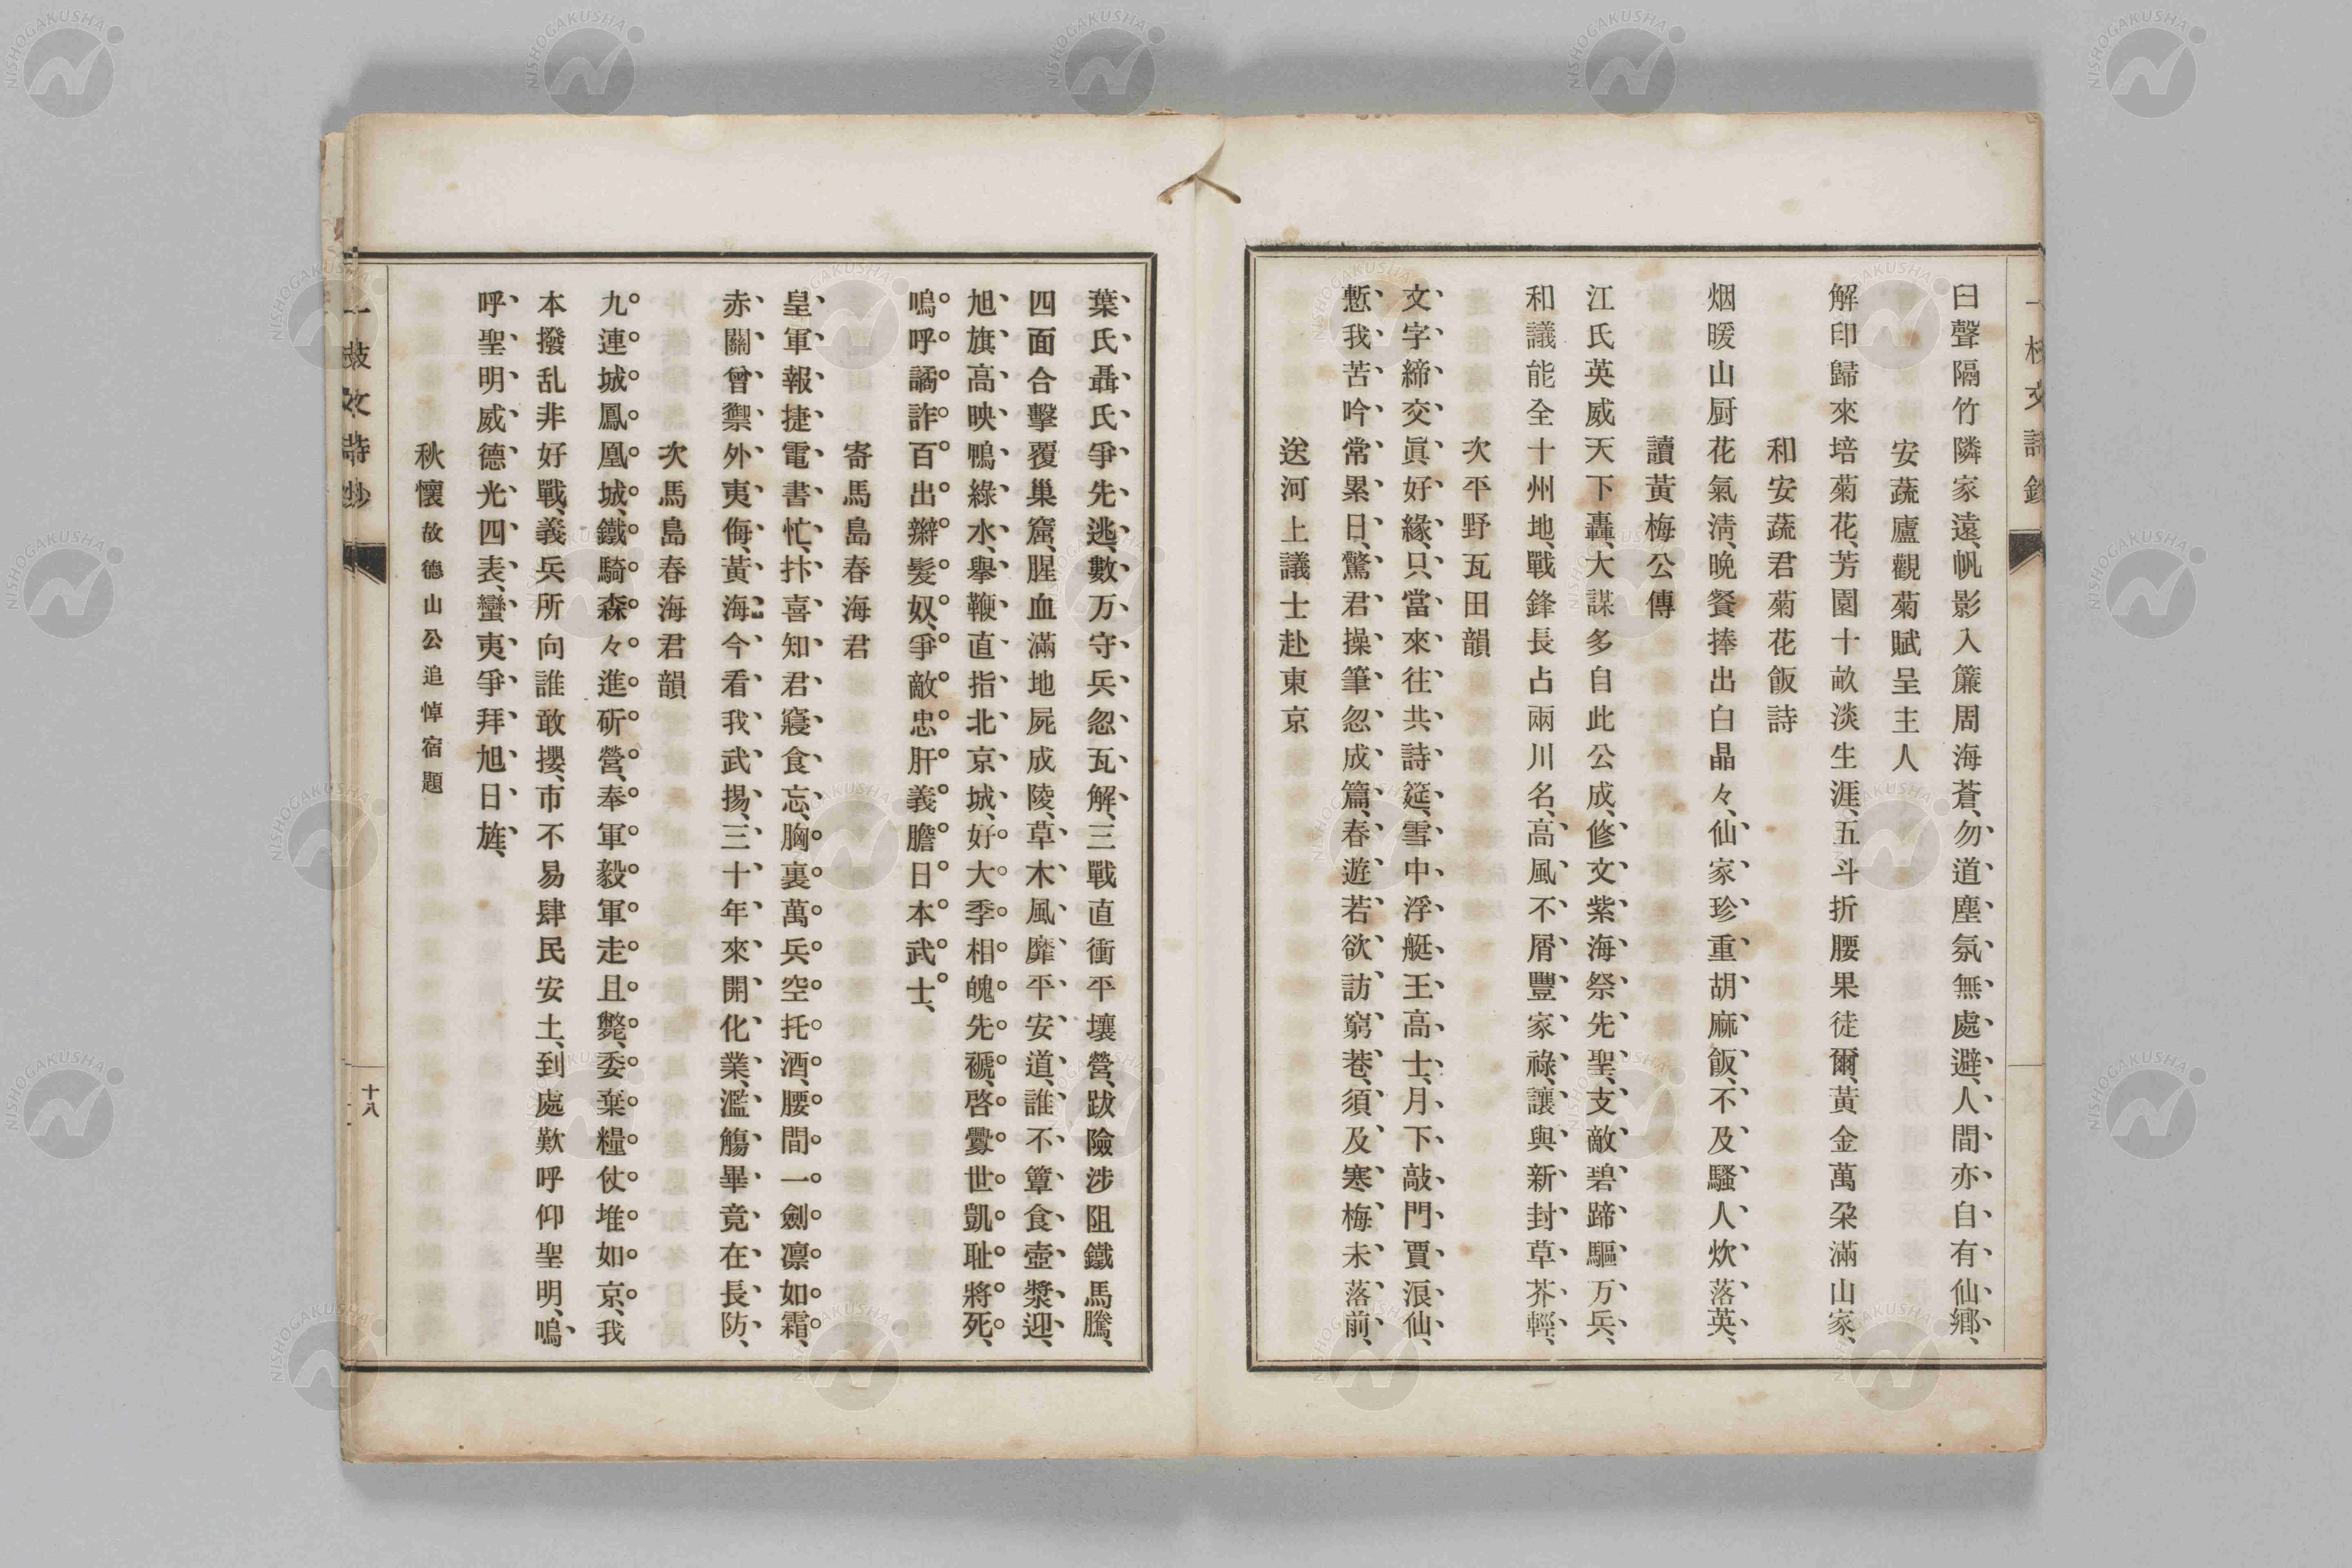 臼聲隔竹隣家遠、帆影入簾周海蒼、勿道塵氛無處避、人間亦自有仙鄕、
安蔬廬觀菊賦呈主人
解印歸來培菊花、芳園十畝淡生涯、五斗折腰果徒爾、黃金萬朶滿山家、
和安蔬君菊花飯詩
烟暖山厨花氣淸、晩餐捧出白晶々、仙家珍重胡麻飯、不及騷人炊落英、
讀黃梅公傳
江氏英威天下轟、大謀多自此公成、修文紫海祭先聖、支敵碧蹄驅万兵、
和議能全十州地、戰鋒長占兩川名、高風不屑豐家祿、讓與新封草芥輕、
次平野瓦田韻
文字締交眞好緣、只當來往共詩筵、雪中浮艇王高士、月下敲門賈浪仙、
慙我苦吟常累日、驚君操筆忽成篇、春遊若欲訪窮巷、須及寒梅未落前、
送河上議士赴東京
葉氏聶氏爭先逃、數万守兵忽瓦解、三戰直衝平壤營、跋險涉阻鐵馬騰、
四面合擊覆巢窟、腥血滿地屍成陵、草木風靡平安道、誰不簞食壺漿迎、
旭旗高映鴨綠水、擧鞭直指北京城、好大季相魄先褫、啓釁世凱耻將死、
嗚呼譎詐百出辮髮奴、爭敵忠肝義膽日本武士、
寄馬島春海君
皇軍報捷電書忙、抃喜知君寢食忘、胸裏萬兵空托酒、腰間一劍凛如霜、
赤關曾禦外夷侮、黃海今看我武揚、三十年來開化業、濫觴畢竟在長防、
次馬島春海君韻
九連城鳳凰城、鐵騎森々進斫營、奉軍毅軍走且斃、委棄糧仗堆如京、我
本撥乱非好戰、義兵所向誰敢攖、市不易肆民安土、到處歎呼仰聖明、嗚
呼聖明威德光四表、蠻夷爭拜旭日旌、
秋懷故德山公追悼宿題
十八
NISHOGAKUSHA